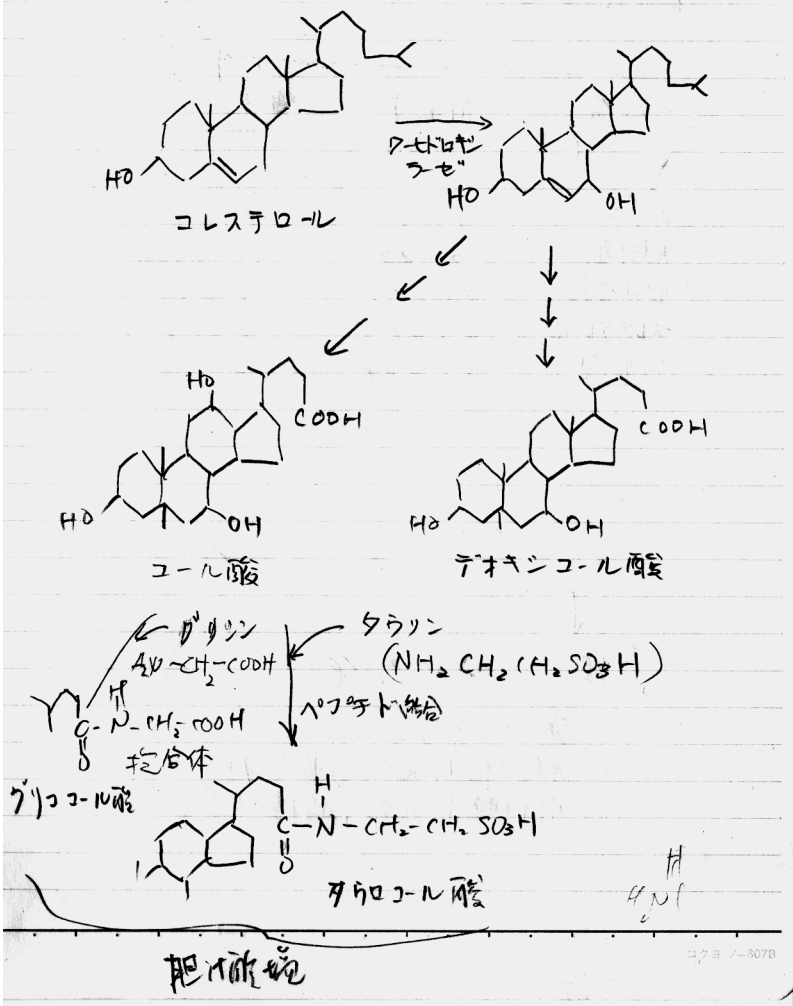 HO
コレステロール
7-ヒドロキシ
ラーゼ
HO
OH
HO
COOH
HO
OH
コール酸
COOH
HO
OH
デオキシコール酸
グリシン
-CH2-COOH
タウリン
(NH2CH2CH2SO3H)
ペプチド結合
H
C-N-CH2-COOH
O
抱合体
グリココール酸
H
C-N-CH2-CH2SO3H
O
タウロコール酸
H
胆汁酸塩
コクヨ ノ-807B